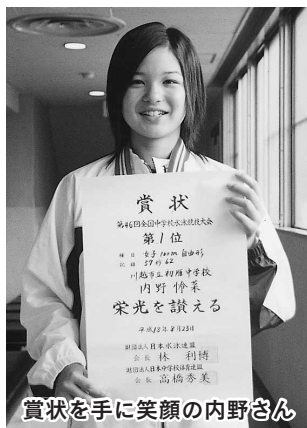 賞状
第46回全国中学校水泳競技大会
第1位
種目 女子100m自由形
記録 57秒62
川越市立初雁中学校
内野 修菜
栄光を讃える
平成18年8月23日
財団法人日本水泳連盟
会長 林 利博
財団法人日本中学校体育連盟
会長 高橋秀美
賞状を手に笑顔の内野さん